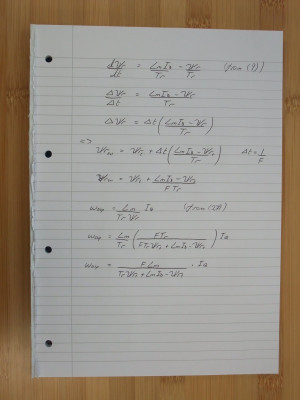 dΨr/dt = LmId/Tr - Ψr/Tr (from (1))
ΔΨr/Δt = (LmId - Ψr)/Tr
ΔΨr = Δt((LmId - Ψr)/Tr)
=>
Ψr = Ψr + Δt((LmId - Ψr)/Tr) Δt = 1/F
Ψr = Ψr + (LmId - Ψr)/(F Tr)
ωslip = Lm/(TrΨr) Iq
ωslip = Lm/Tr (FTr/(FTrΨr + LmId - Ψr)) Iq
ωslip = F Lm/(TrΨr + LmId - Ψr) · Iq